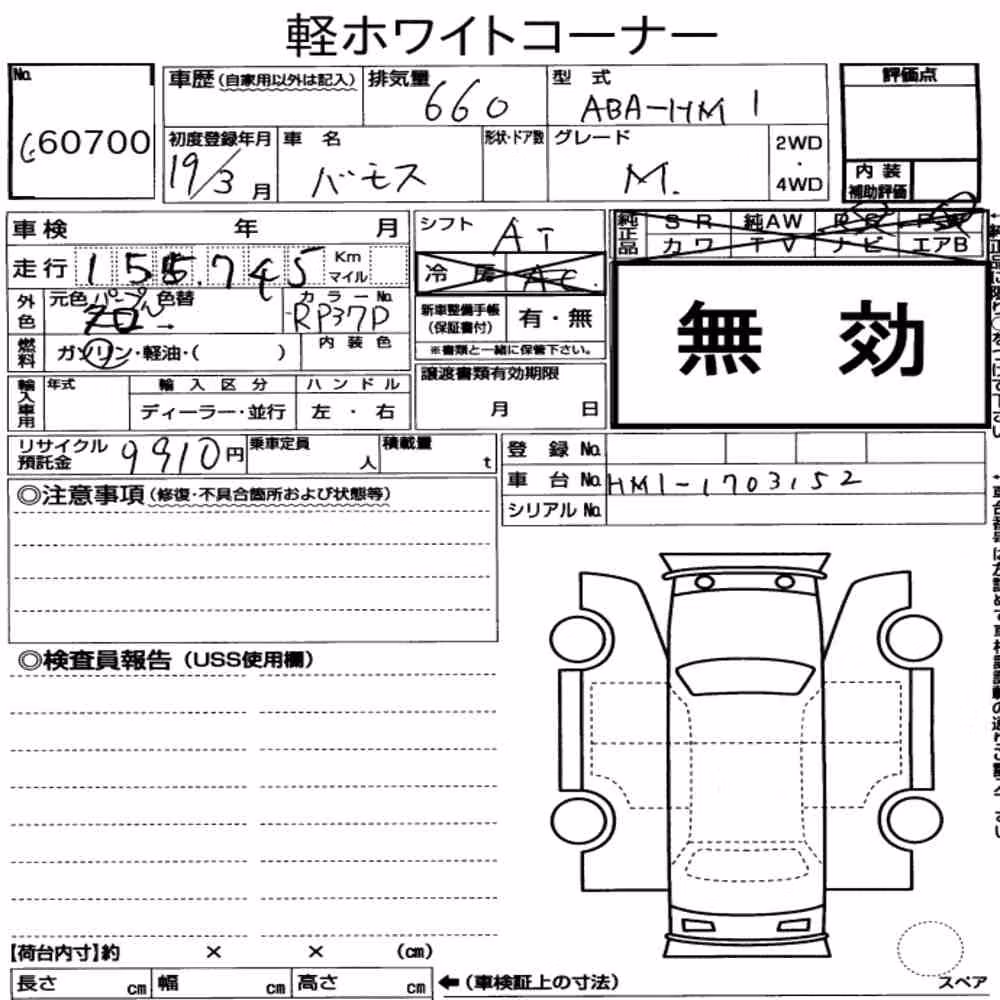 軽ホワイトコーナー
No.
60700
車歴(自家用以外は記入)
排気量
660
型 式
ABA-HM1
評価点
初度登録年月
19/3月
車 名
バモス
形状・ドア数
グレード
M.
2WD
・
4WD
内 装
補助評価
車検 年 月
シフト
AT
純正品
SR 純AW
カワ TV ナビ エアB
走行
155.745
Km
マイル
冷房 AC
無 効
外色
元色 パープル 色替
カラーNo.
RP37P
新車整備手帳
(保証書付)
有・無
※書類と一緒に保管下さい。
燃料
ガソリン・軽油・( )
内装色
譲渡書類有効期限
月 日
輸入車用
年式
輸入区分
ディーラー・並行
ハンドル
左 ・ 右
リサイクル
預託金
9910円
乗車定員
人
積載量
t
登 録 No.
車 台 No.
HM1-1703152
シリアル No.
◎注意事項(修復・不具合箇所および状態等)
◎検査員報告(USS使用欄)
【荷台内寸】約 × × (cm)
長さ cm 幅 cm 高さ cm
←(車検証上の寸法)
スペア